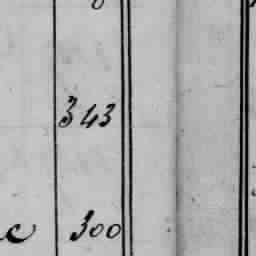 343
c 300